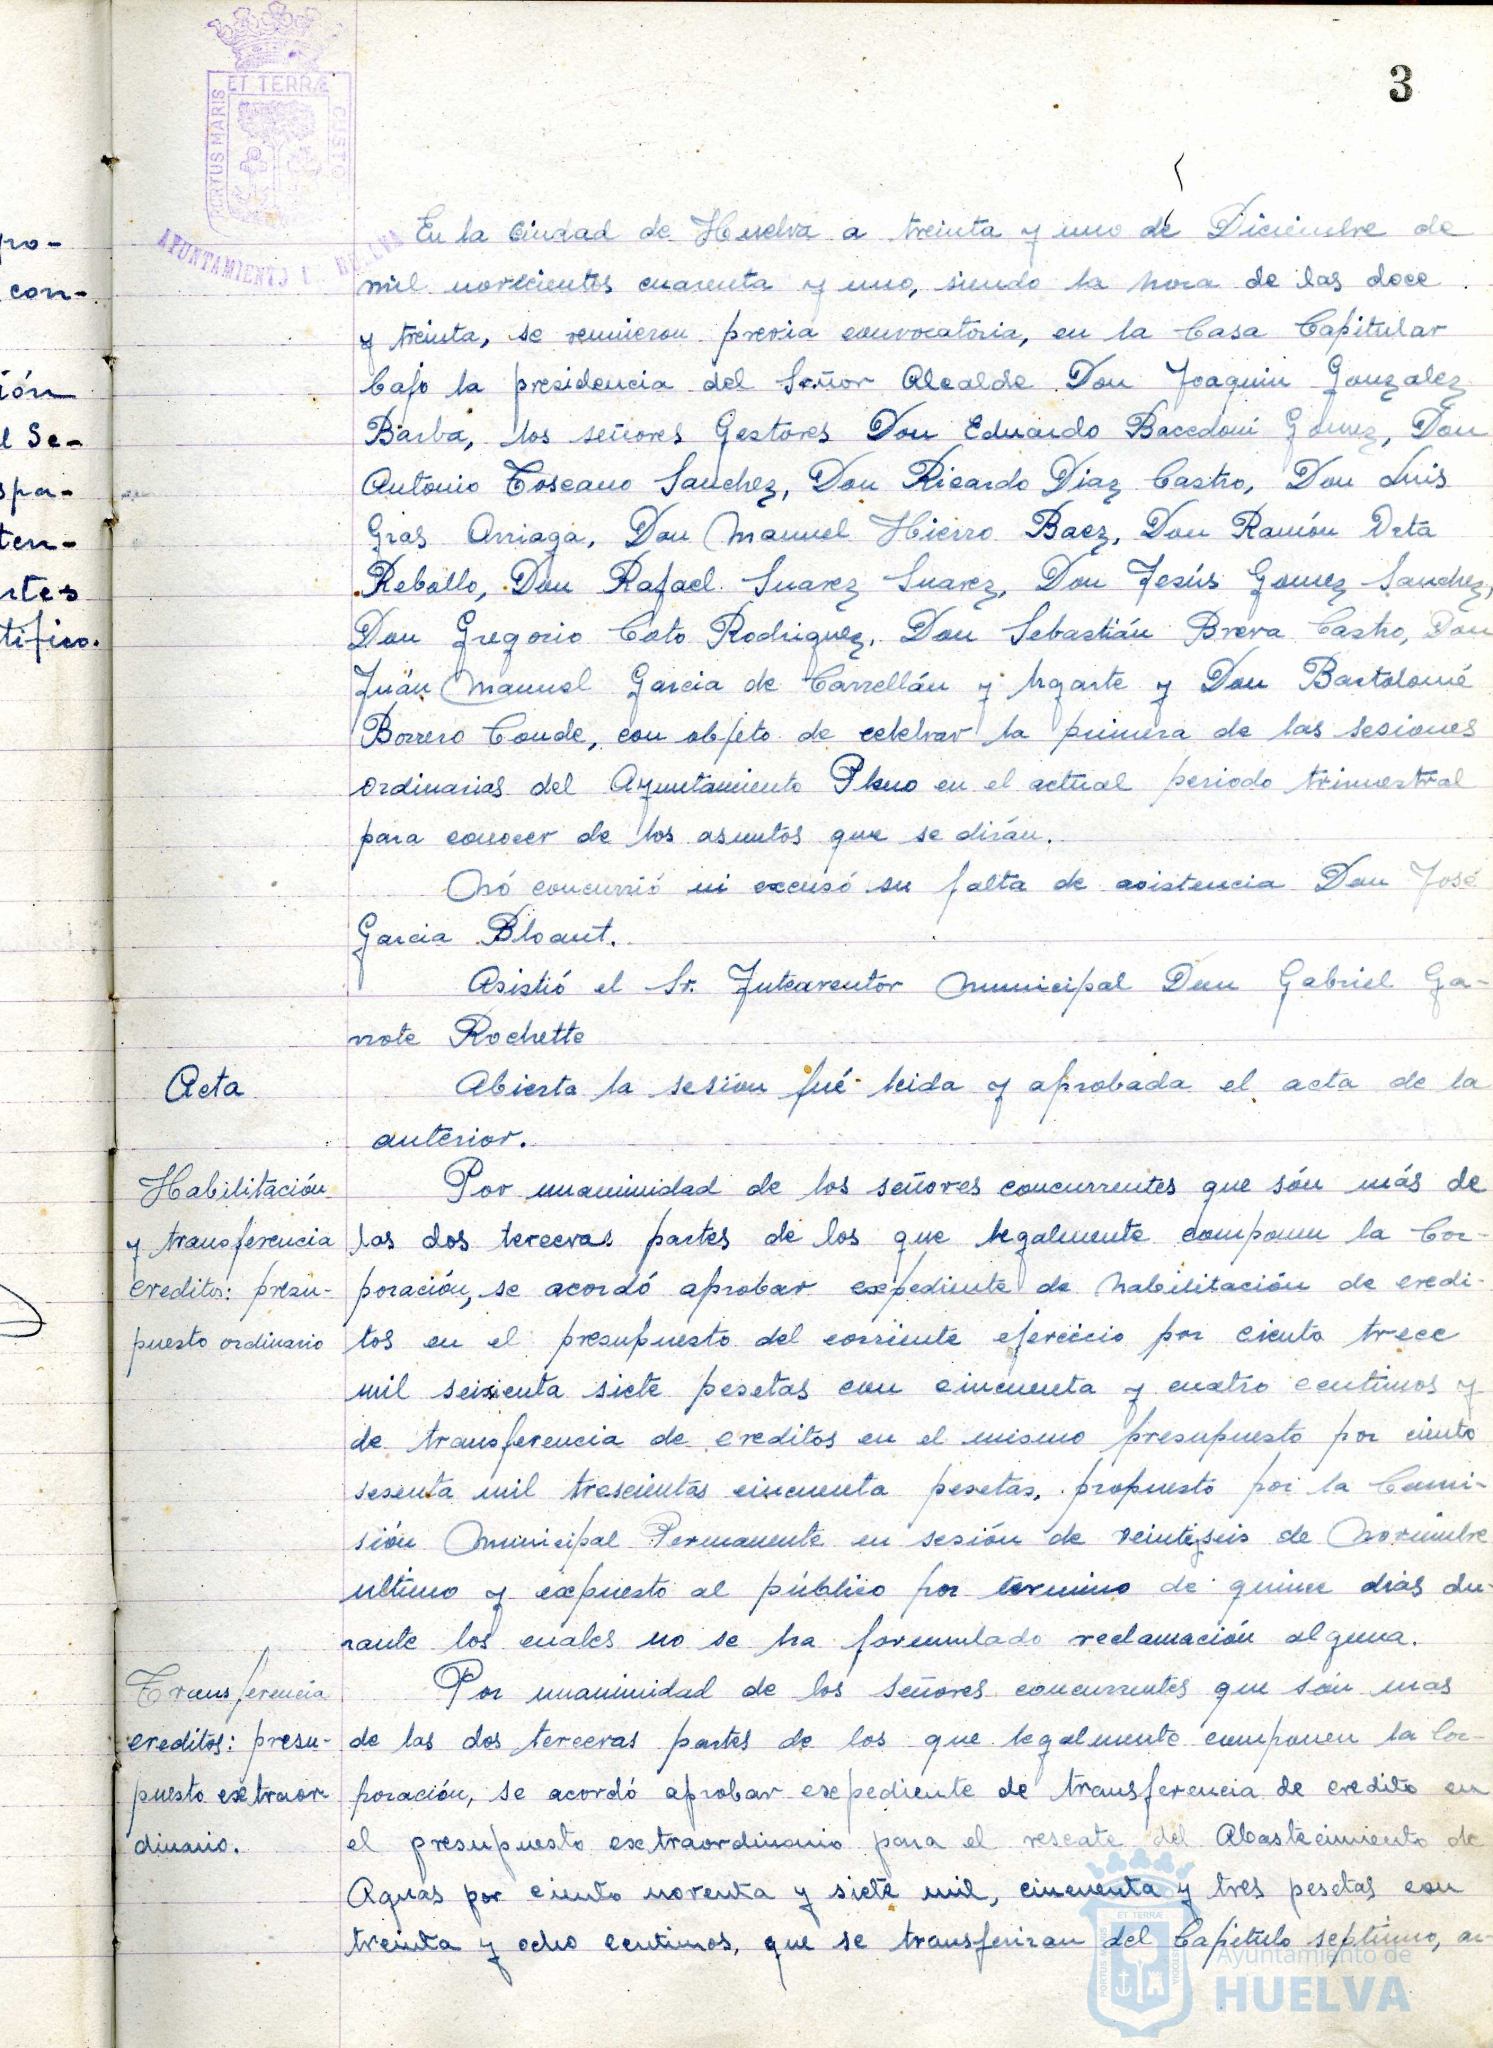 3
PORTUS MARIS ET TERRÆ CUSTO
AYUNTAMIENTO
pro-
con-
ión
l Se-
spa-
ten-
rtes
tífico.
En la Ciudad de Huelva a treinta y uno de Diciembre de
mil novecientos cuarenta y uno, siendo la hora de las doce
y treinta, se reunieron previa convocatoria, en la Casa Capitular
bajo la presidencia del Señor Alcalde Don Joaquin Gonzalez
Barba, los señores Gestores Don Eduardo Bacedoni Gomez, Don
Antonio Toscano Sanchez, Don Ricardo Diaz Castro, Don Luis
Gras Arriaga, Don Manuel Hierro Baez, Don Ramón Orta
Rebollo, Don Rafael Suarez Suarez, Don Jesús Gomez Sanchez,
Don Gregorio Coto Rodriguez, Don Sebastián Breva Castro, Don
Juán Manuel Garcia de Carrellán y Ugarte y Don Bartolomé
Borrero Conde, con objeto de celebrar la primera de las sesiones
ordinarias del Ayuntamiento Pleno en el actual periodo trimestral
para conocer de los asuntos que se dirán.
Nó concurrió ni excusó su falta de asistencia Don José
Garcia Bloant.
Asistió el Sr. Interventor Municipal Don Gabriel Ga-
rrote Rochette
Acta
Abierta la sesión fué leida y aprobada el acta de la
anterior.
Habilitación
y transferencia
creditos: presu-
puesto ordinario
Por unanimidad de los señores concurrentes que són más de
las dos terceras partes de los que legalmente componen la Cor-
poración, se acordó aprobar expediente de habilitación de credi-
tos en el presupuesto del corriente ejercicio por ciento trece
mil seisienta siete pesetas con cincuenta y cuatro centimos y
de transferencia de creditos en el mismo presupuesto por ciento
sesenta mil trescientas cincuenta pesetas, propuesto por la Comi-
sión Municipal Permanente en sesión de veintiseis de Noviembre
ultimo y expuesto al público por termino de quince dias du-
rante los cuales no se ha formulado reclamación alguna.
Transferencia
creditos: presu-
puesto extraor-
dinario.
Por unanimidad de los señores concurrentes que són mas
de las dos terceras partes de los que legalmente componen la Cor-
poración, se acordó aprobar expediente de transferencia de credito en
el presupuesto extraordinario para el rescate del Abastecimiento de
Aguas por ciento noventa y siete mil, cincuenta y tres pesetas con
treinta y ocho centimos, que se transferiran del Capitulo septimo, ar-
Ayuntamiento de
HUELVA